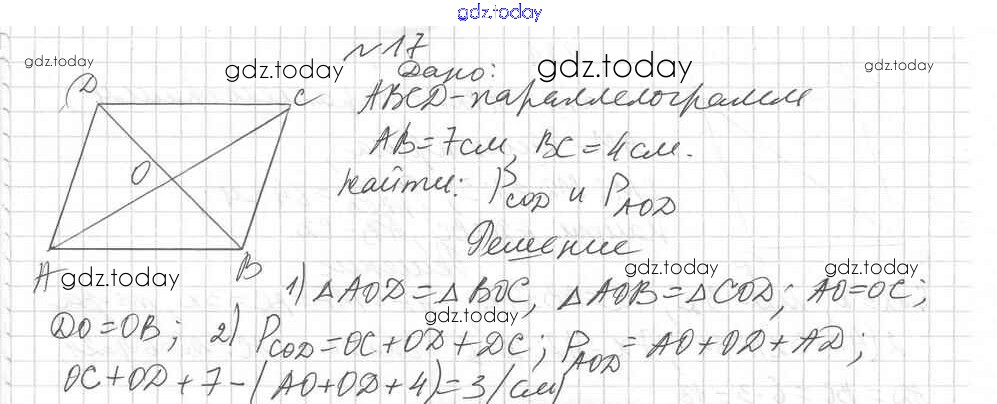 gdz.today
№ 17
gdz.today gdz.today gdz.today gdz.today
Дано:
D C
ABCD - параллелограмм
AB = 7 см, BC = 4 см.
O
Найти: P COD и P AOD
Решение
A B
gdz.today gdz.today gdz.today
1) △AOD = △BOC, △AOB = △COD; AO = OC;
gdz.today
DO = OB; 2) P COD = OC + OD + DC; P AOD = AO + OD + AD;
OC + OD + 7 - (AO + OD + 4) = 3 (см)